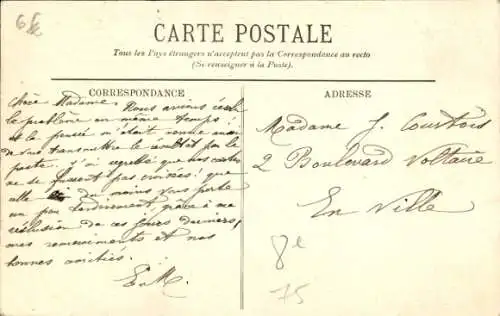 6f
CARTE POSTALE
Tous les Pays étrangers n'acceptent pas la Correspondance au recto
(Se renseigner à la Poste).
CORRESPONDANCE
ADRESSE
Chère Madame, Nous avions résolu
le problème en même temps !
et la pensée m'était venue aussi
de vous transmettre le bientôt par la
poste. J'ai regretté que nos cartes
ne se fussent pas croisées ! que
celle du moins vous porte
un peu tardivement, grâce à ma
réclusion de ces jours derniers,
mes remerciements et nos
bonnes amitiés.
E. M.
Madame J. Courtois
2 Boulevard Voltaire
En Ville
8e
75